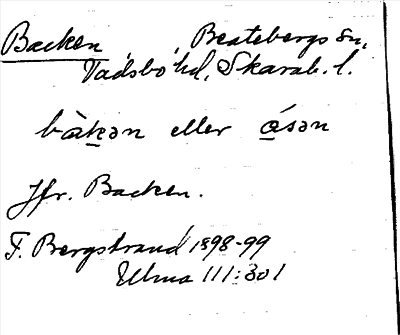 Backen Beatebergs sn,
Vadsbo hd, Skarab. l.
bàk̲ən eller ó̲sən
Jfr. Backen.
F. Bergstrand 1898-99
Ulma 111:301